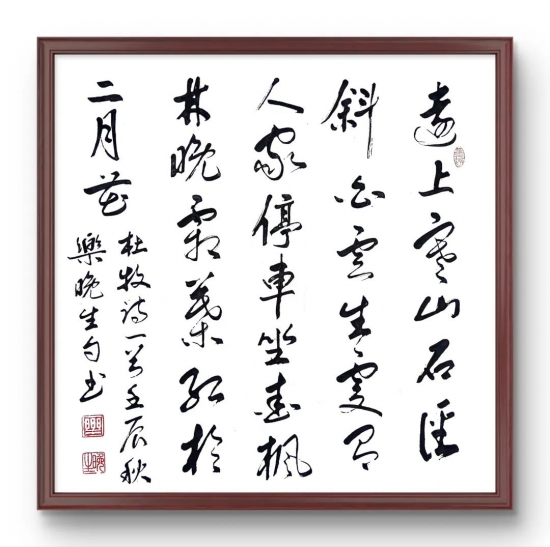 遠上寒山石徑
斜白雲生處有
人家停車坐愛楓
林晚霜葉紅於
二月花
杜牧詩一首壬辰秋
樂晚生書